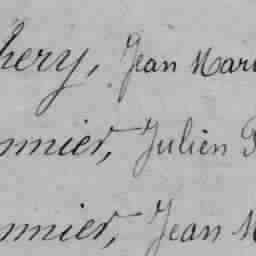 hery, Jean Mari
onnier, Julien
onnier, Jean M